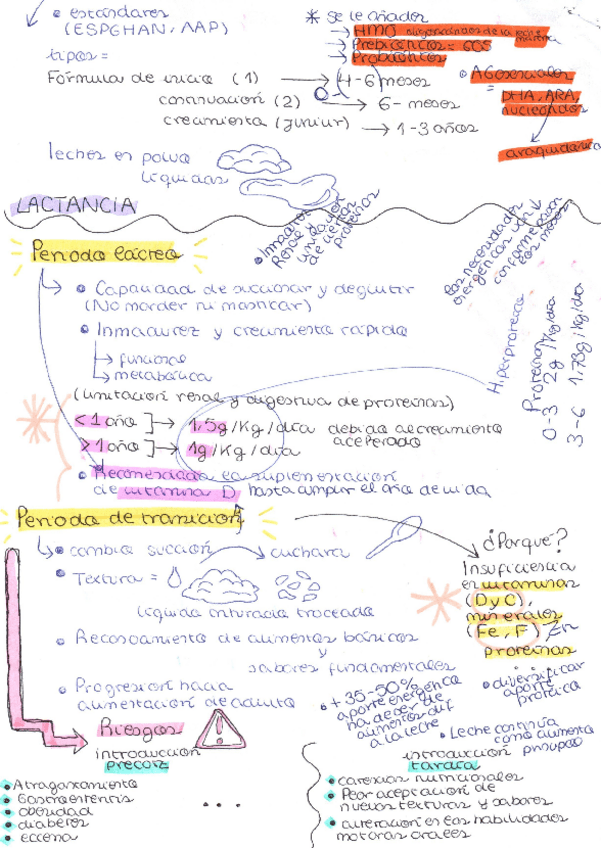 • estándares
(ESPGHAN, AAP)
tipos =
Fórmula de inicio (1) → 4-6 meses
0-
continuación (2) → 6- meses
crecimiento (junior) → 1-3 años
leches en polvo
líquidas
* se le añaden
→ HMO oligosacáridos de la leche materna
→ Prebióticos = GOS
→ Probióticos
• AG esenciales
= DHA, ARA,
nucleótidos
araquidónico
LACTANCIA
Periodo lácteo
• Inmadurez
Renal y der
de ciertas
proteínas
las necesidades
energéticas van ↓
conforme pasan
los meses
→ • Capacidad de succionar y deglutir
(No morder ni masticar)
• Inmadurez y crecimiento rápido
→ funcional
→ metabólica
(limitación renal y digestiva de proteínas)
<1 año ] → 1,5g/Kg/día debido al crecimiento
>1 año ] → 1g/Kg/día acelerado
Hiperproteica
Proteínas
0-3 2g /Kg/día
3-6 1,73g/Kg/día
• Recomendada la suplementación
de vitamina D hasta cumplir el año de vida
Periodo de transición
→ • cambia succión → cuchara
• Textura =
líquida triturada troceada
• Reconocimiento de alimentos básicos
y
sabores fundamentales
• Progresión hacia
alimentación de adulto
¿Por qué?
Insuficiencia
en vitaminas
(D y C),
minerales
(Fe, F) Zn
proteínas
• diversificar
aporte
proteica
• + 35-50%
aporte energético
ha de ser de
alimentos dif
a la leche
• Leche continúa
como alimento
principal
Riesgos
introducción
precoz
• Atragantamiento
• Gastroenteritis
• obesidad
• diabetes
• eccema
...
introducción
tardía
• carencias nutricionales
• Peor aceptación de
nuevas texturas y sabores
• alteración en las habilidades
motoras orales